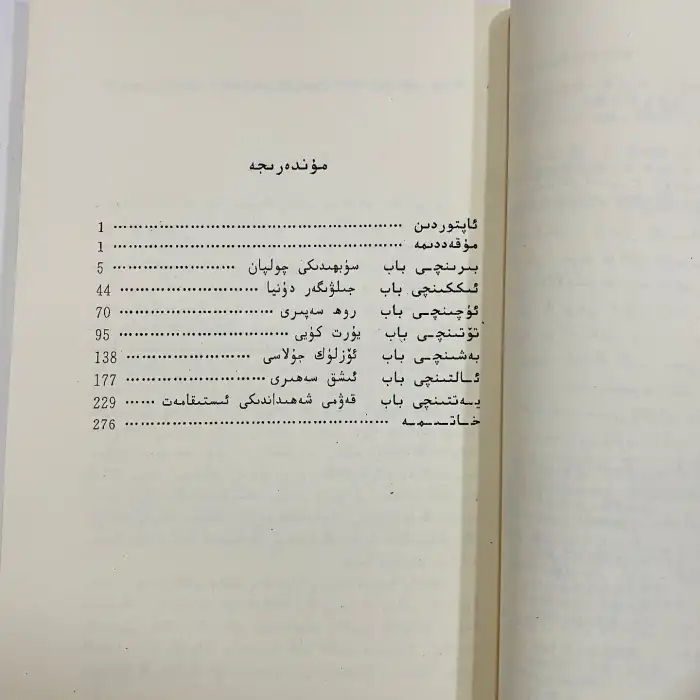 مۇندەرىجە
ئاپتوردىن ………………………………………… 1
مۇقەددىمە ………………………………………… 1
بىرىنچى باب سۈبھىدىكى چولپان ………………… 5
ئىككىنچى باب جىلۋىگەر دۇنيا ………………… 44
ئۈچىنچى باب روھ سەپىرى …………………… 70
تۆتىنچى باب يۇرت كۈيى …………………… 95
بەشىنچى باب ئۆزلۈك جۇلاسى ………………… 138
ئالتىنچى باب ئىشق سەھىرى ………………… 177
يەتتىنچى باب قەۋمى شەھىداندىكى ئىستىقامەت …… 229
خاتىمە ………………………………………… 276